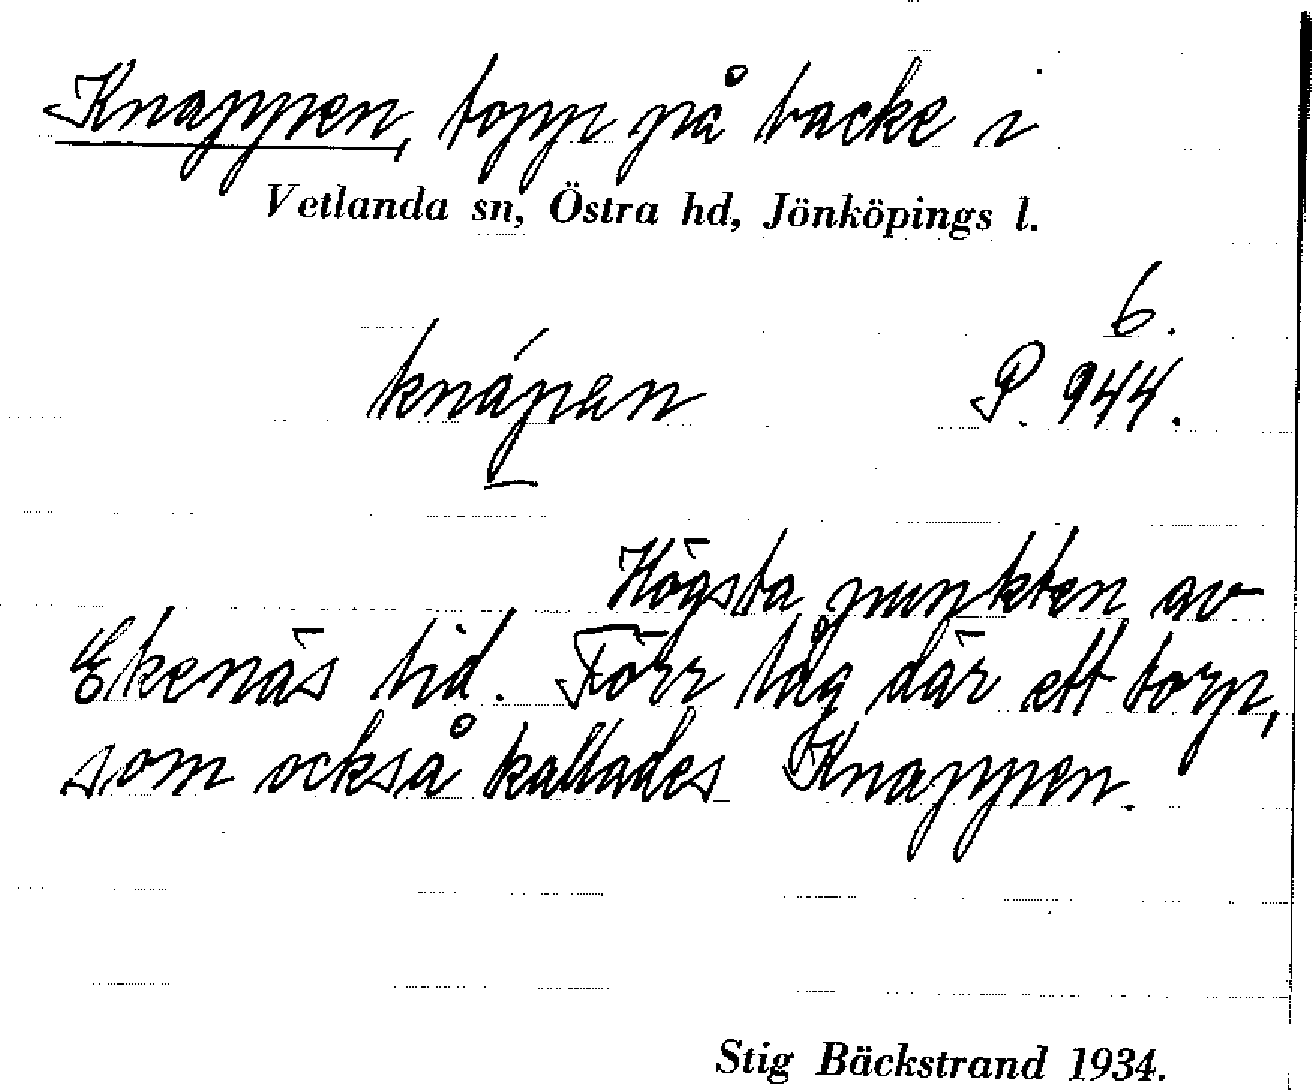 Knappen, topp på backe i
Vetlanda sn, Östra hd, Jönköpings l.
6.
knápen P. 944.
Högsta punkten av
Ekenäs lid. Förr låg där ett torp,
som också kallades Knappen.
Stig Bäckstrand 1934.